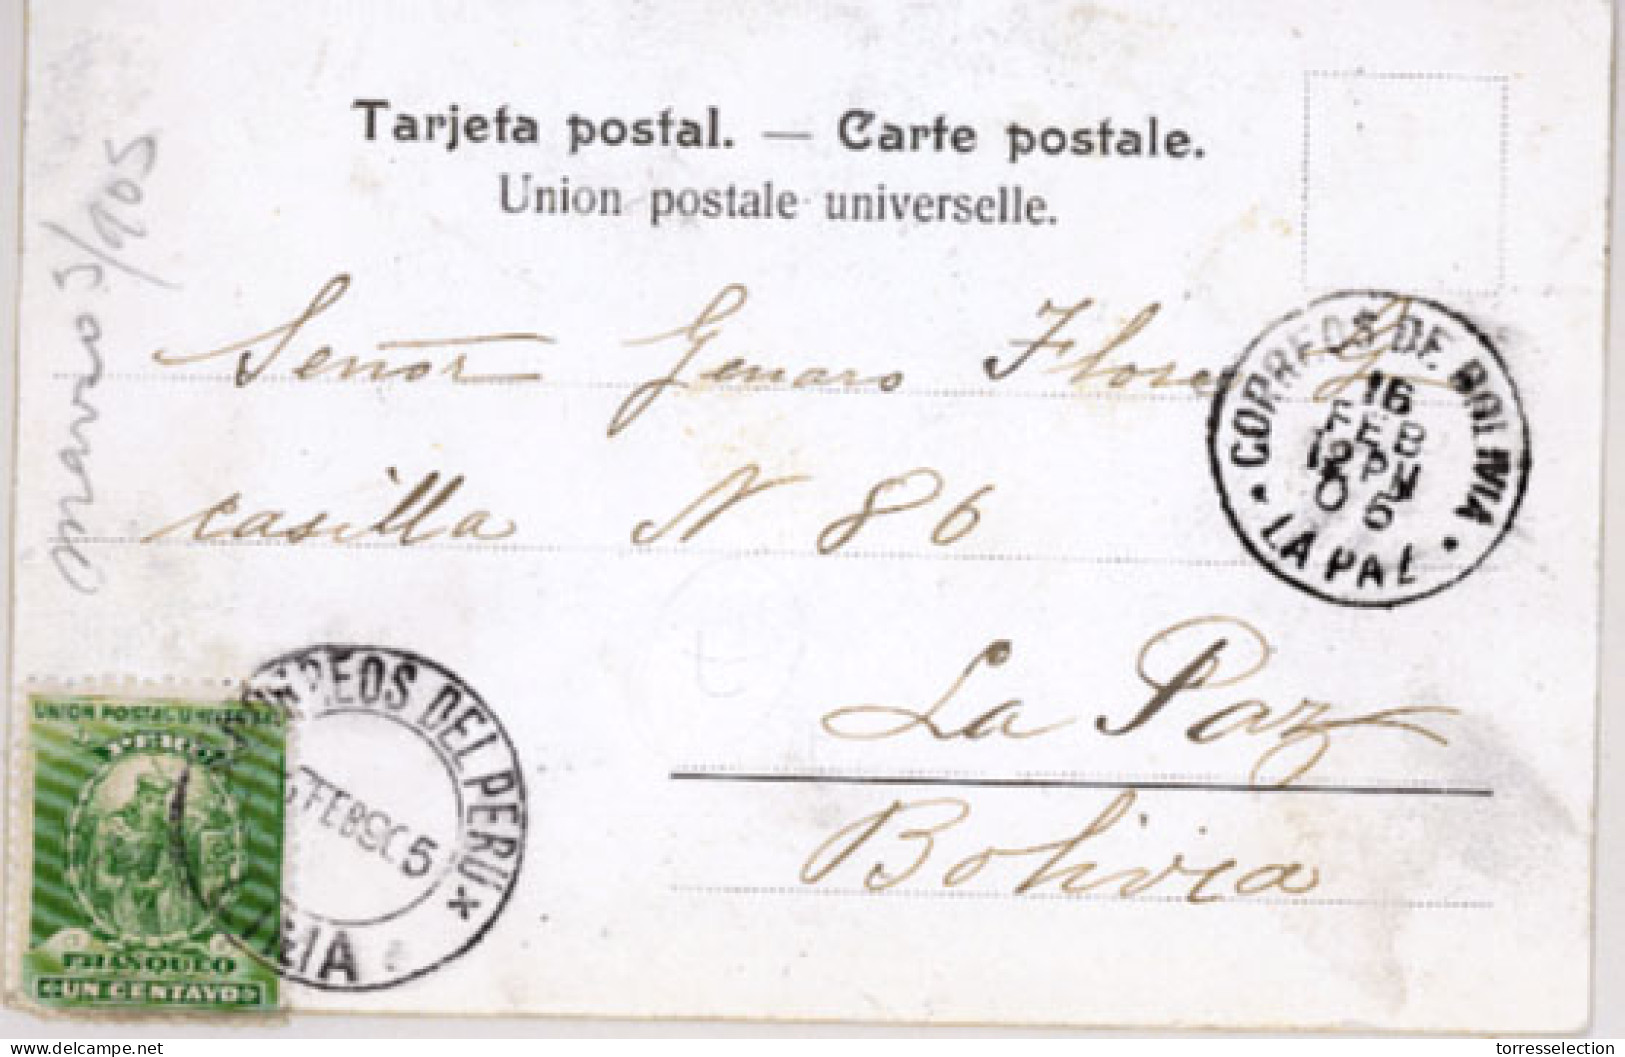 Tarjeta postal. — Carte postale.
Union postale universelle.
Señor Genaro Flores
casilla N 86
La Paz
Bolivia
CORREOS DE BOLIVIA
16
FEB
12 PM
0 5
LA PAZ
/905
UNION POSTAL UNIVERSAL
PERU
FRANQUEO
UN CENTAVO
CORREOS DEL PERU
FEB 905
Delcampe.net
torresselection